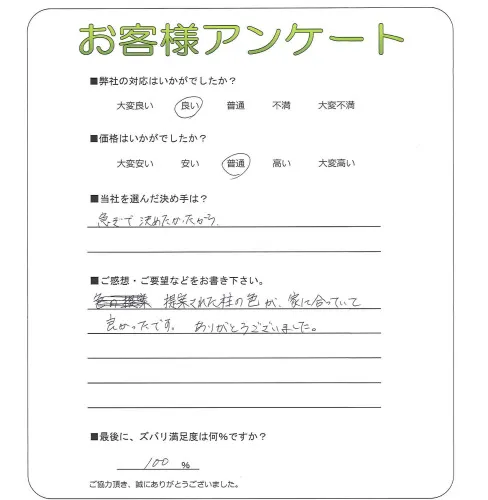 お客様アンケート
■弊社の対応はいかがでしたか?
大変良い 良い 普通 不満 大変不満
■価格はいかがでしたか?
大変安い 安い 普通 高い 大変高い
■当社を選んだ決め手は?
急ぎで決めたかったから、
■ご感想・ご要望などをお書き下さい。
提案された柱の色が、家に合っていて
良かったです。 ありがとうございました。
■最後に、ズバリ満足度は何%ですか?
100 %
ご協力頂き、誠にありがとうございました。